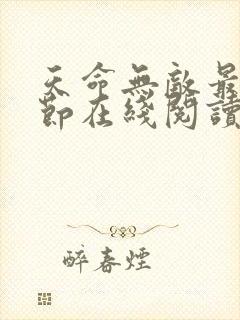 天命無敵最
節在綫閱讀
醉春煙